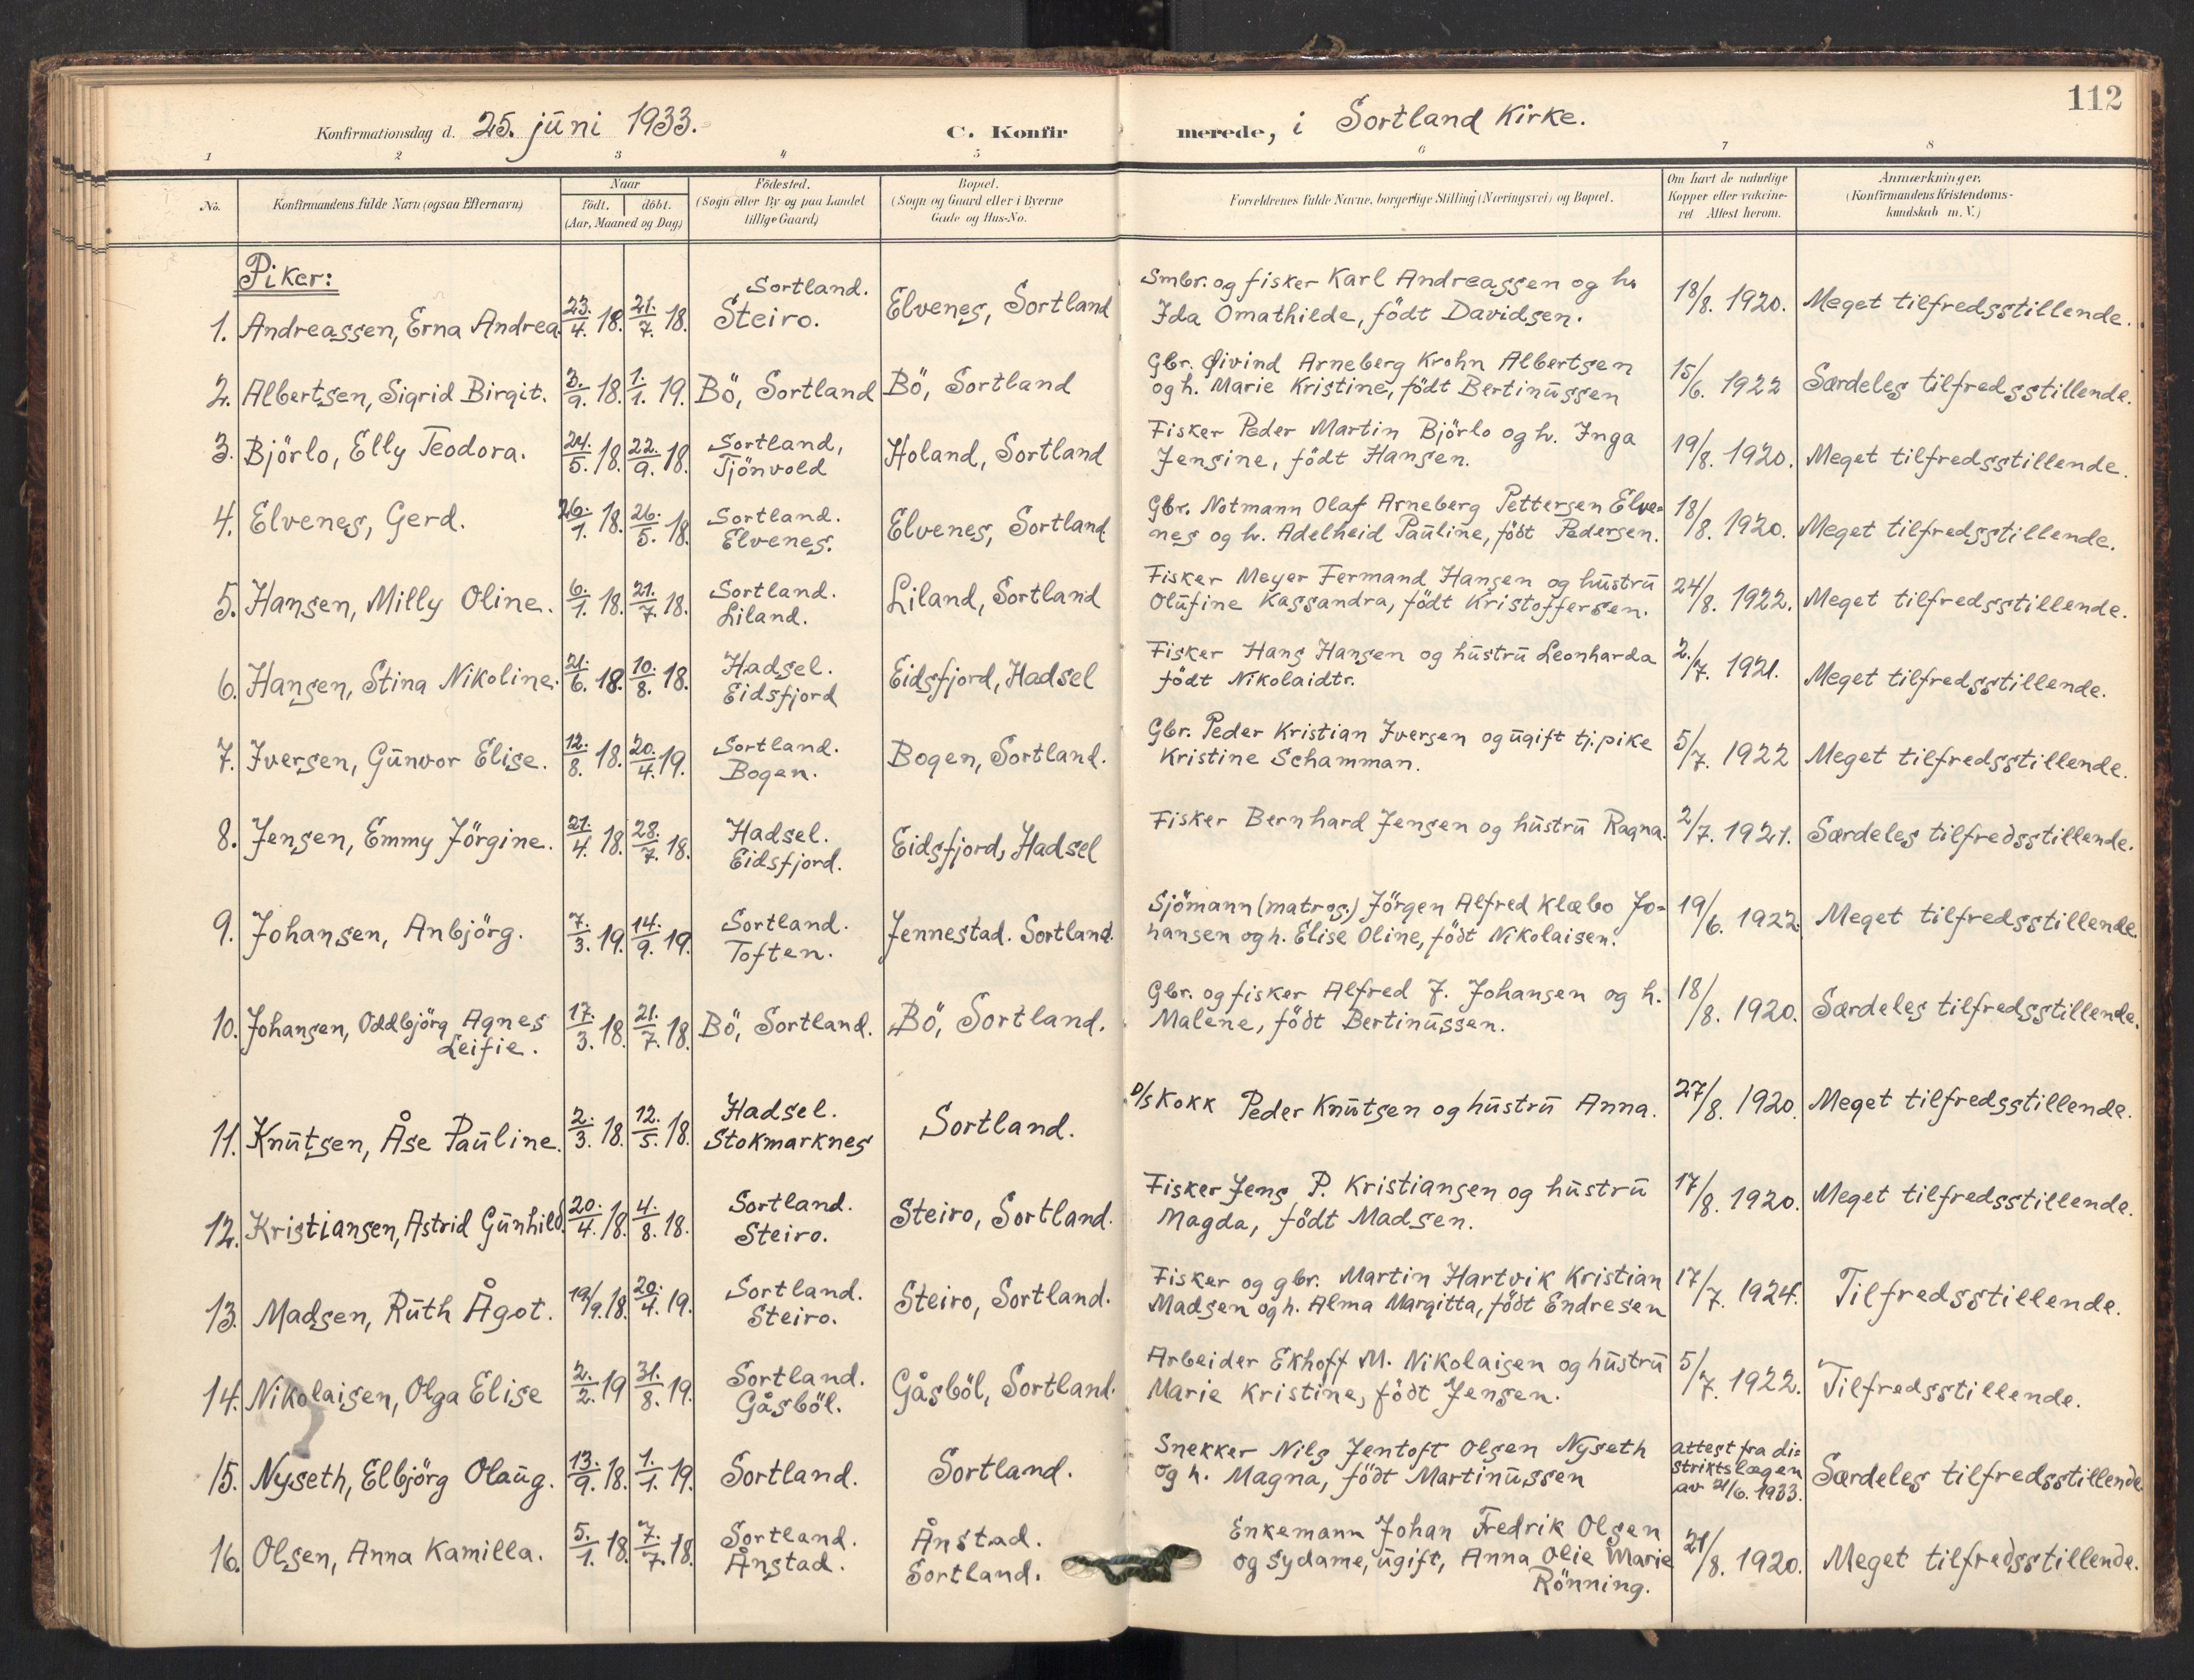 112
Konfirmationsdag d. 25. juni 1933. C. Konfirmerede, i Sortland Kirke.
1 2 3 4 5 6 7 8
No. Konfirmandens fulde Navn (ogsaa Efternavn) Naar født. døbt. (Aar, Maaned og Dag) Fødested. (Sogn eller By og paa Landet tillige Gaard) Bopæl. (Sogn og Gaard eller i Byerne Gade og Hus-No. Forældrenes fulde Navne, borgerlige Stilling (Næringsvei) og Bopæl. Om havt de naturlige Kopper eller vakcineret Attest herom. Anmærkninger. (Konfirmandens Kristendomskundskab m. V.)
Piker:
1. Andreassen, Erna Andrea 23./4. 18. 21./7. 18. Sortland. Steiro. Elvenes, Sortland Smbr. og fisker Karl Andreassen og h. Ida Omathilde, födt Davidsen. 18/8. 1920. Meget tilfredsstillende.
2. Albertsen, Sigrid Birgit. 3./9. 18. 1./1. 19. Bö, Sortland Bö, Sortland Gbr. Øivind Arneberg Krohn Albertsen og h. Marie Kristine, födt Bertinussen 15/6. 1922 Særdeles tilfredsstillende.
3. Björlo, Elly Teodora. 24./5. 18. 22./9. 18. Sortland, Tjönvold Holand, Sortland Fisker Peder Martin Björlo og h. Inga Jensine, födt Hansen. 19/8. 1920. Meget tilfredsstillende.
4. Elvenes, Gerd. 26./1. 18. 26./5. 18. Sortland. Elvenes. Elvenes, Sortland Gbr. Notmann Olaf Arneberg Pettersen Elve=nes og h. Adelheid Pauline, födt Pedersen. 18/8. 1920. Meget tilfredsstillende.
5. Hansen, Milly Oline. 6./1. 18. 21./7. 18. Sortland. Liland. Liland, Sortland Fisker Meyer Fermand Hansen og hustru Olufine Kassandra, födt Kristoffersen. 24/8. 1922. Meget tilfredsstillende.
6. Hansen, Stina Nikoline. 21./6. 18. 10./8. 18. Hadsel. Eidsfjord Eidsfjord, Hadsel Fisker Hans Hansen og hustru Leonharda födt Nikolaidtr. 2./7. 1921. Meget tilfredsstillende.
7. Iversen, Gunvor Elise. 12./8. 18. 20./4. 19. Sortland. Bogen. Bogen, Sortland. Gbr. Peder Kristian Iversen og ugift tj.pike Kristine Schamman. 5/7. 1922 Meget tilfredsstillende.
8. Jensen, Emmy Jörgine. 21./4. 18. 28./7. 18. Hadsel. Eidsfjord. Eidsfjord, Hadsel Fisker Bernhard Jensen og hustru Ragna. 2/7. 1921. Særdeles tilfredsstillende.
9. Johansen, Anbjörg. 7./3. 19. 14./9. 19. Sortland. Toften. Jennestad. Sortland. Sjömann (matros.) Jörgen Alfred Klæbo Jo=hansen og h. Elise Oline, födt Nikolaisen. 19/6. 1922. Meget tilfredsstillende.
10. Johansen, Oddbjörg Agnes Leifie. 17./3. 18. 21./7. 18. Bö, Sortland. Bö, Sortland. Gbr. og fisker Alfred J. Johansen og h. Malene, födt Bertinussen. 18/8. 1920. Særdeles tilfredsstillende.
11. Knutsen, Åse Pauline. 2./3. 18. 12./5. 18. Hadsel. Stokmarknes Sortland. D/S Kokk Peder Knutsen og hustru Anna. 27/8. 1920 Meget tilfredsstillende.
12. Kristiansen, Astrid Gunhild. 20./4. 18. 4./8. 18. Sortland. Steiro. Steiro, Sortland. Fisker Jens P. Kristiansen og hustru Magda, födt Madsen. 17/8. 1920. Meget tilfredsstillende.
13. Madsen, Ruth Ågot. 19/9. 18. 20./4. 19. Sortland. Steiro. Steiro, Sortland. Fisker og gbr. Martin Hartvik Kristian Madsen og h. Alma Margitta, födt Endresen 17/7. 1924. Tilfredsstillende.
14. Nikolaisen, Olga Elise 2./2. 19 31./8. 19. Sortland. Gåsböl. Gåsböl, Sortland. Arbeider Ekhoff M. Nikolaisen og hustru Marie Kristine, födt Jensen. 5/7. 1922. Tilfredsstillende.
15. Nyseth, Elbjörg Olaug. 13./9. 18. 1./1. 19. Sortland. Sortland. Snekker Nils Jentoft Olsen Nyseth og h. Magna, födt Martinussen attest fra di=striktslægen av 21/6. 1933. Særdeles tilfredsstillende.
16. Olsen, Anna Kamilla. 5./1. 18. 7./7. 18. Sortland. Ånstad. Ånstad. Sortland. Enkemann Johan Fredrik Olsen og sydame, ugift, Anna Olie Marie Rönning. 21/8. 1920. Meget tilfredsstillende.